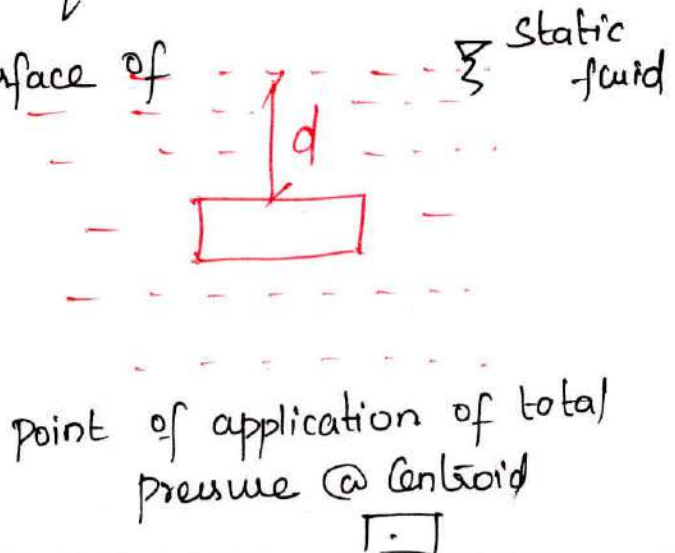 Static
rface of
fluid
d
point of application of total
pressure @ Centroid